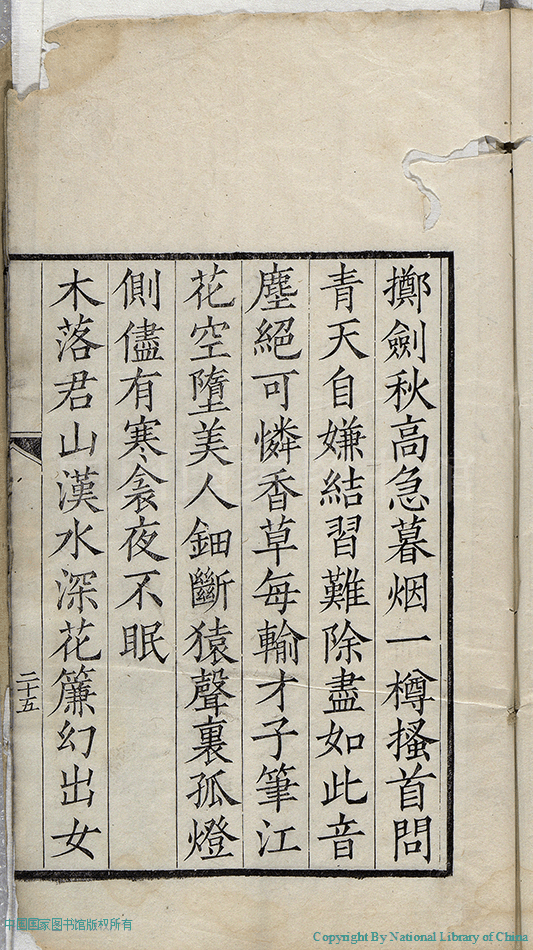 擲劍秋高急暮烟一樽搔首問
青天自嫌結習難除盡如此音
塵絕可憐香草每輸才子筆江
花空墮美人鈿斷猿聲裏孤燈
側儘有寒衾夜不眠
木落君山漢水深花簾幻出女
二十五
中国国家图书馆版权所有
Copyright By National Library of China